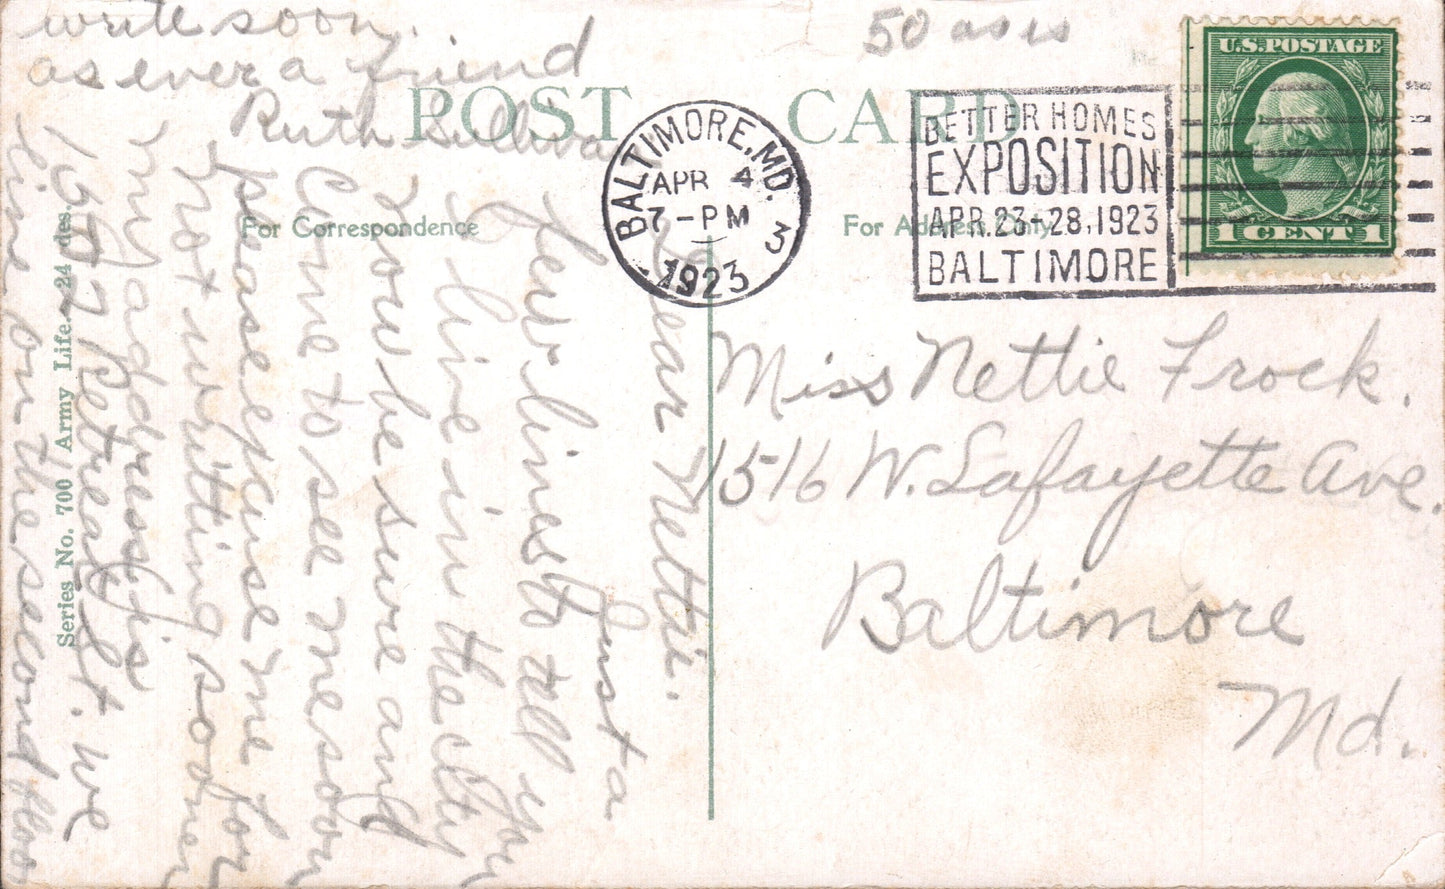 50 as is
U.S. POSTAGE
1 CENT 1
POST CARD
BALTIMORE, MD.
APR 4
7-PM
1923
3
BETTER HOMES
EXPOSITION
APR. 23-28, 1923
BALTIMORE
For Correspondence
For Address Only
Series No. 700 Army Life. 24 des.
Dear Nettie.
Just a
few lines to tell you
I live in the city
now be sure and
Come to see me soon
please excuse me for
not writing sooner
my address is
Retreat St. we
live on the second floor
write soon.
as ever a friend
Ruth Sulliva
Miss Nettie Frock.
1516 W. Lafayette Ave.
Baltimore
Md.